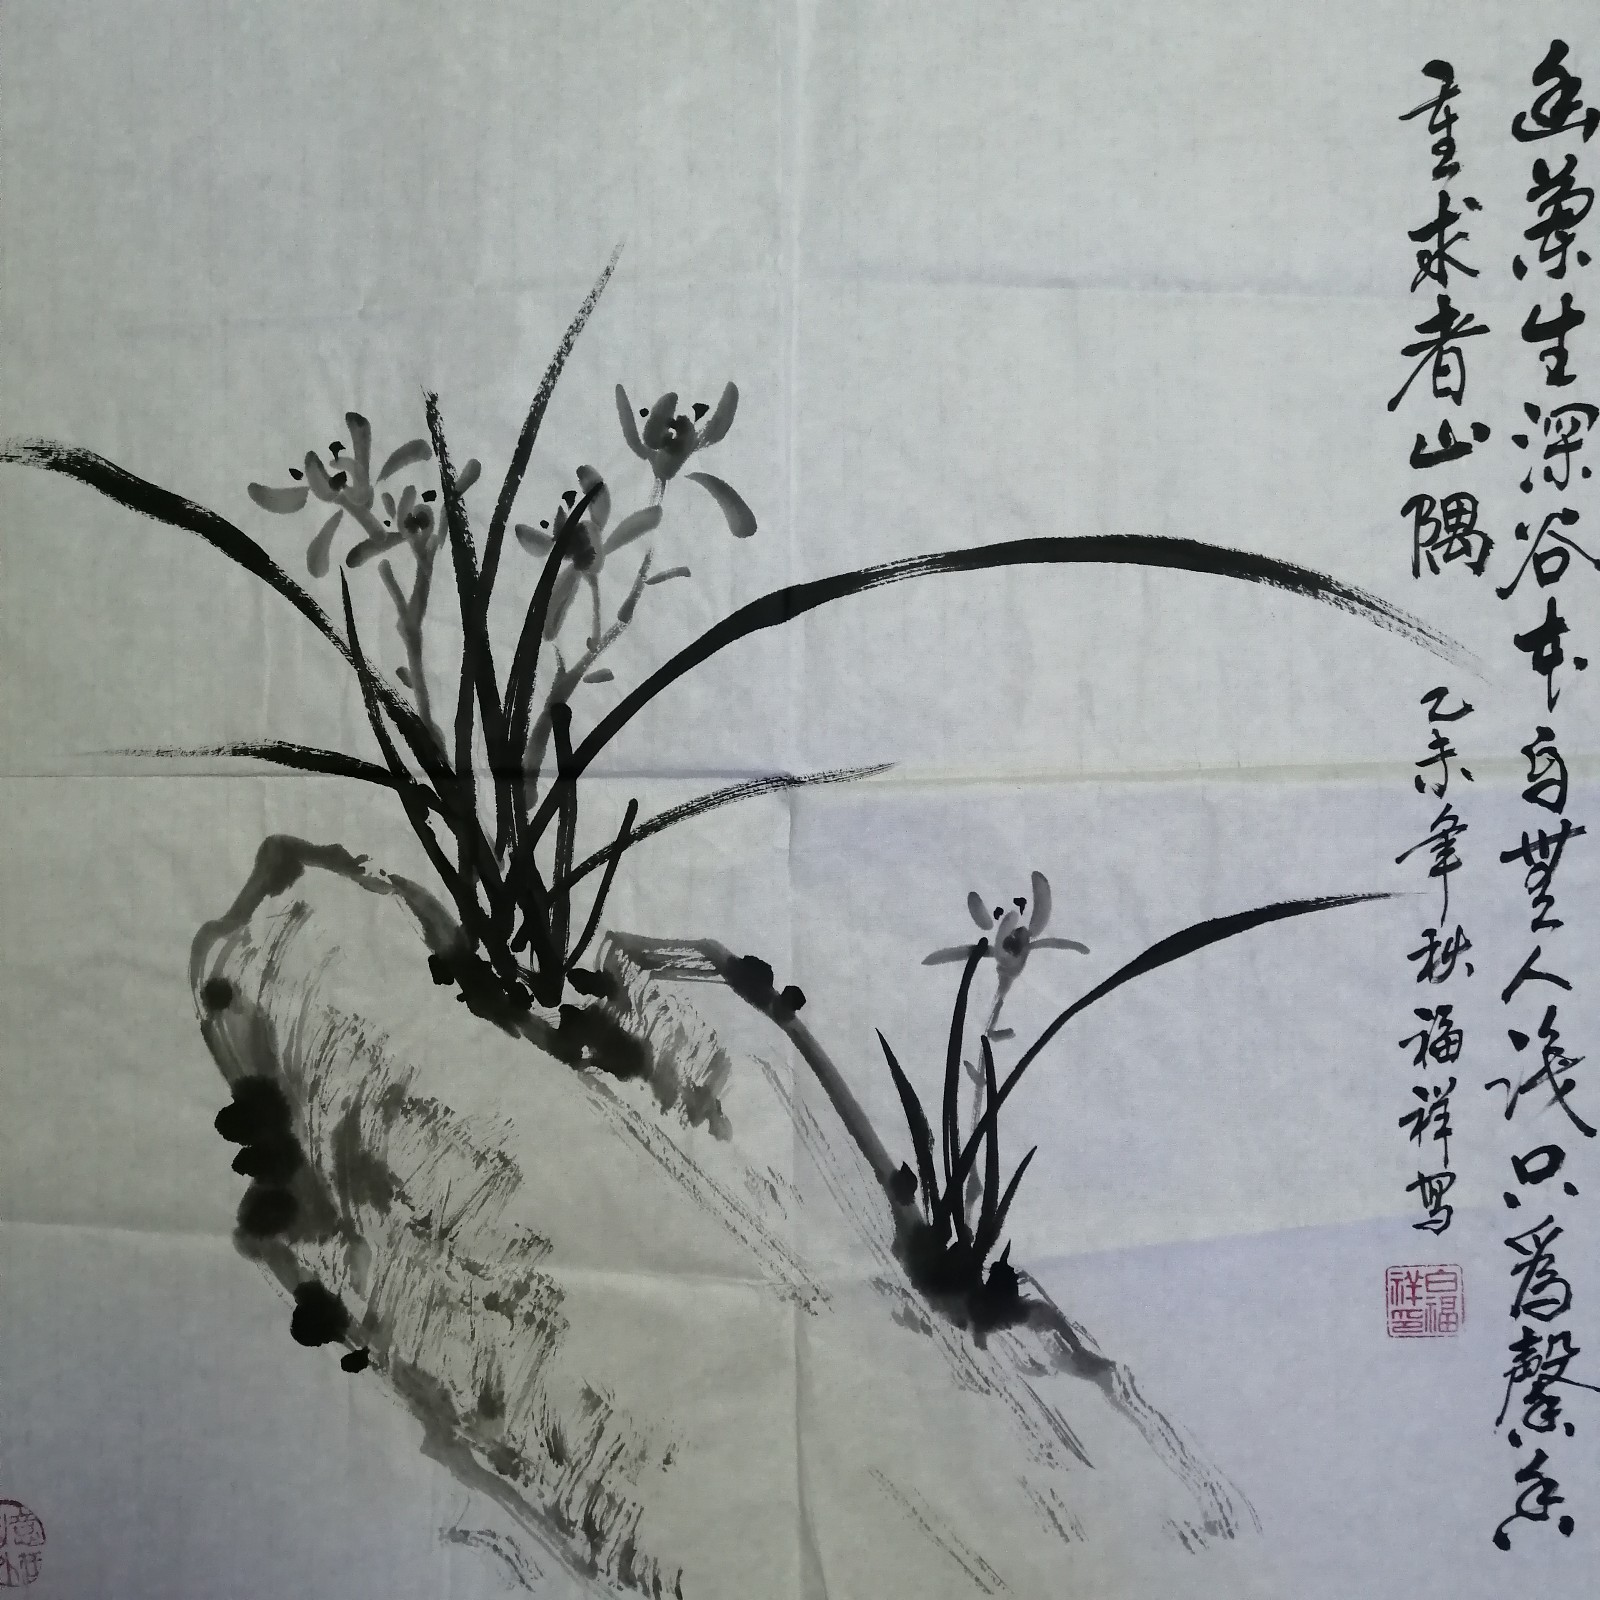 幽蘭生深谷本自無人識只爲馨香
重求者山隅
乙未年秋福祥写
白福祥印